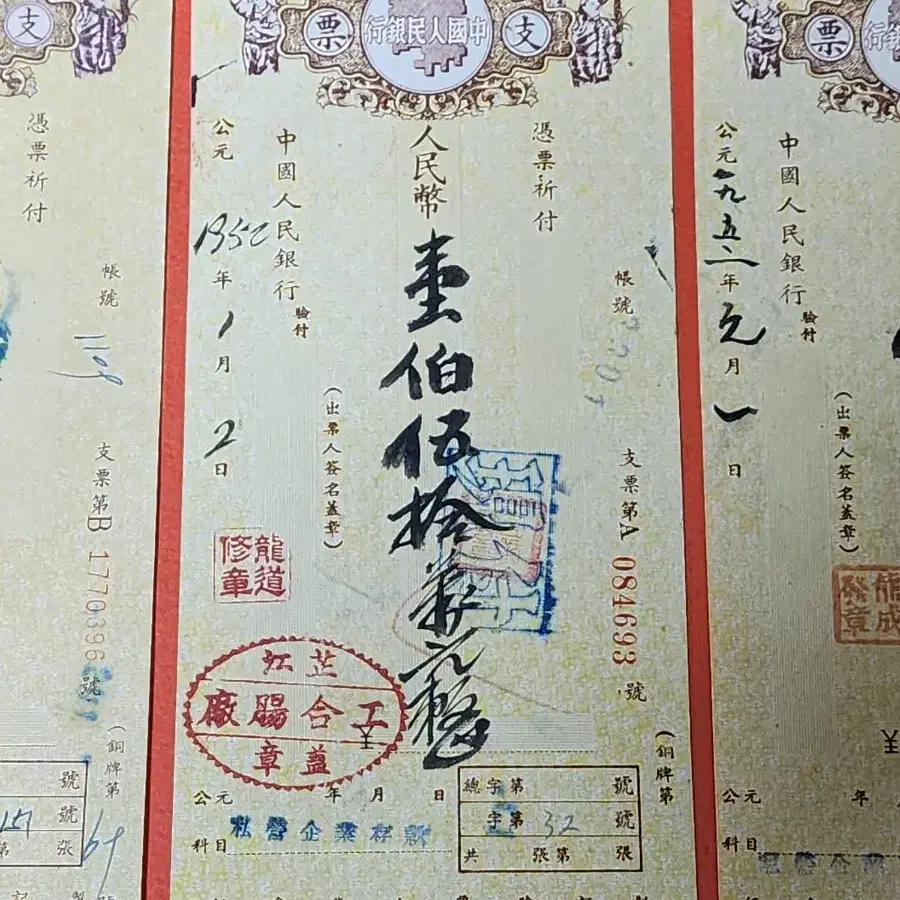 支
憑票祈付
帳號
支票第B 1770396號
(銅牌第
號
號
第 張
中國人民銀行
支票
憑票祈付
帳號
支票第A 084693號
(銅牌第
人民幣
壹佰伍拾萬元整
(出票人簽名蓋章)
中國人民銀行
驗付
公元1952年1月2日
龍道修章
芷江
工合腸廠
蓋章
公元 年 月 日
科目
私營企業存款
總字第 號
字第32號
共 張第 張
票
中國人民銀行
驗付
(出票人簽名蓋章)
公元一九五二年元月一日
龍成發章
公元 年
科目